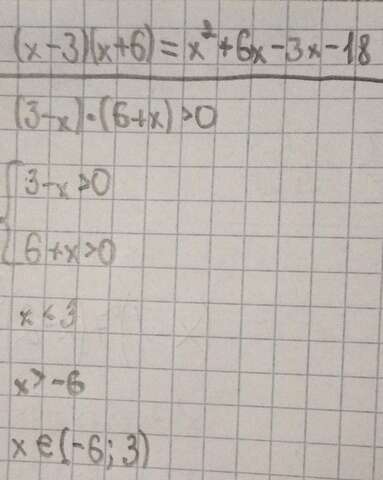 (x-3)(x+6)=x²+6x-3x-18
(3-x)·(6+x)>0
{3-x>0
6+x>0
x<3
x>-6
x∈(-6;3)